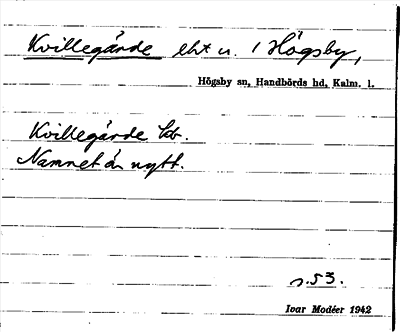 Kvillegärde eht u. 1 Högsby,
Högsby sn, Handbörds hd, Kalm. l.
Kvillegärde hb.
Namnet är nytt.
s. 53.
Ivar Modéer 1942